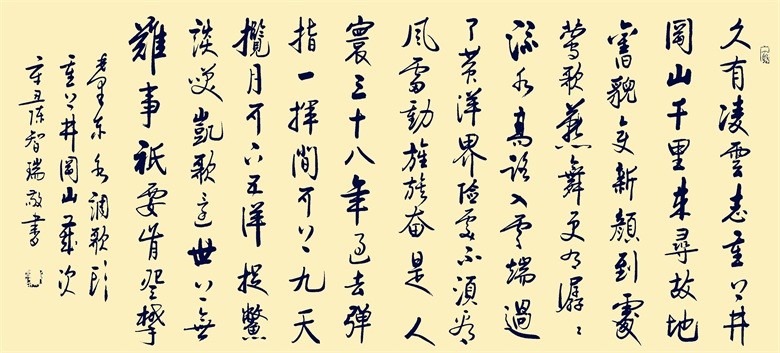 久有凌雲志重上井
岡山千里来尋故地
舊貌变新顔到處
莺歌燕舞更有潺潺
流水高路入雲端過
了黄洋界险處不須看
風雷動旌旗奋是人
寰三十八年过去弹
指一揮間可上九天
攬月可下五洋捉鱉
談笑凱歌还世上無
難事衹要肯登攀
毛泽东水調歌头
重上井岡山歲次
辛丑陈智瑞敬書